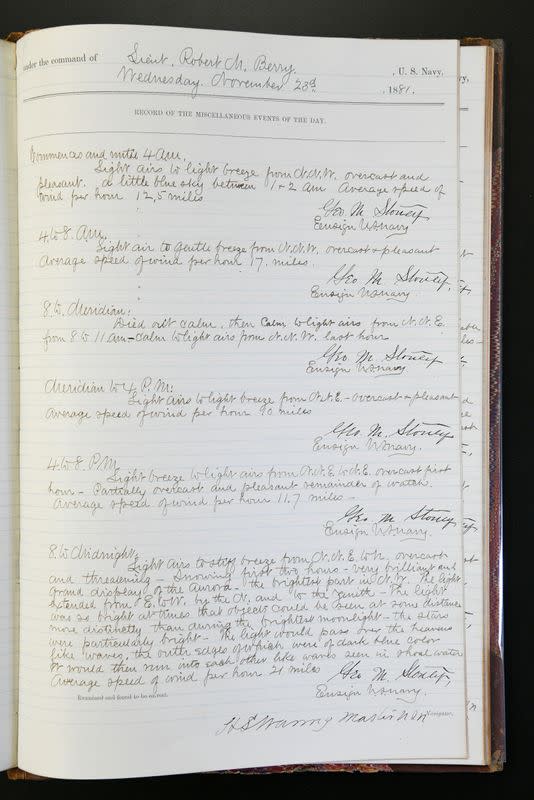 under the command of Lieut. Robert M. Berry, U. S. Navy,
Wednesday, November 23d, 1881.
RECORD OF THE MISCELLANEOUS EVENTS OF THE DAY.
Commences and until 4 Am.
Light airs to light breeze from N.N.W. overcast and
pleasant. a little blue sky between 1 & 2 am Average speed of
wind per hour 12,5 miles
Geo. M. Stoney
Ensign USNavy
4 to 8. Am.
Light air to gentle breeze from N.N.W. overcast & pleasant
Average speed of wind per hour 17. miles.
Geo M. Stoney,
Ensign USnavy
8 to Meridian:
Died out calm, then calm to light airs from N.N.E.
from 8 to 11 am - Calm to light airs from N.N.W. last hour
Geo. M. Stoney
Ensign USnavy
Meridian to 4 P.M:
Light airs to light breeze from N.N.E. - overcast & pleasant
Average speed of wind per hour 10 miles
Geo. M. Stoney
Ensign USnavy.
4 to 8 P.M.
Light breeze to light airs from N.N.E. to N.E. overcast first
hour - Partially overcast and pleasant remainder of watch.
Average speed of wind per hour 11.7 miles -
Geo M. Stoney
Ensign USnavy.
8 to Midnight.
Light airs to stiff breeze from N.N.E. to N. overcast
and threatening - Snowing first two hours - very brilliant and
grand display of the Aurora - the brightest part in N.W. The light
extended from E. to W. by the N. and to the Zenith - The light
was so bright at times that objects could be seen at some distance
more distinctly than during the brightest moonlight - the stars
were particularly bright - The light would pass over the heavens
like waves, the outer edges of which were of dark blue color
& would then run into each other like waves seen in shoal water
Average speed of wind per hour 21 miles
Geo M. Stoney
Ensign USnavy.
Examined and found to be correct.
H S Waring Master USN Navigator.